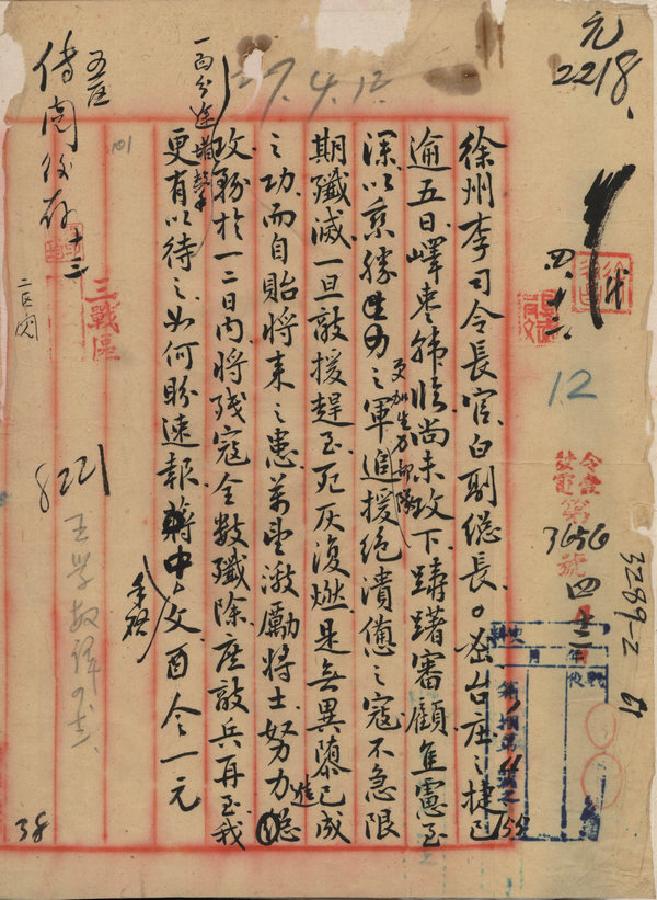 元
2218.
四、十二、
12
令壹
發電
第3656號
四 十二
3289-2
27.4.12.
徐州李司令長官白副總長。密台庄之捷已
逾五日嶧棗韓臨尚未攻下躊躇審顧焦慮至
深以乘勝之軍更加生力部隊追援絕潰憊之寇不急限
期殲滅一旦敵援趕至死灰復燃是無異墮已成
之功而自貽將來之患萬望激勵將士努力進
攻務於一二日內將殘寇全數殲除庶敵兵再至我
更有以待之如何盼速報中文酉令一元
手啓
一面分途
三戰區
十三
傳閱後存
二區閱
8221
38